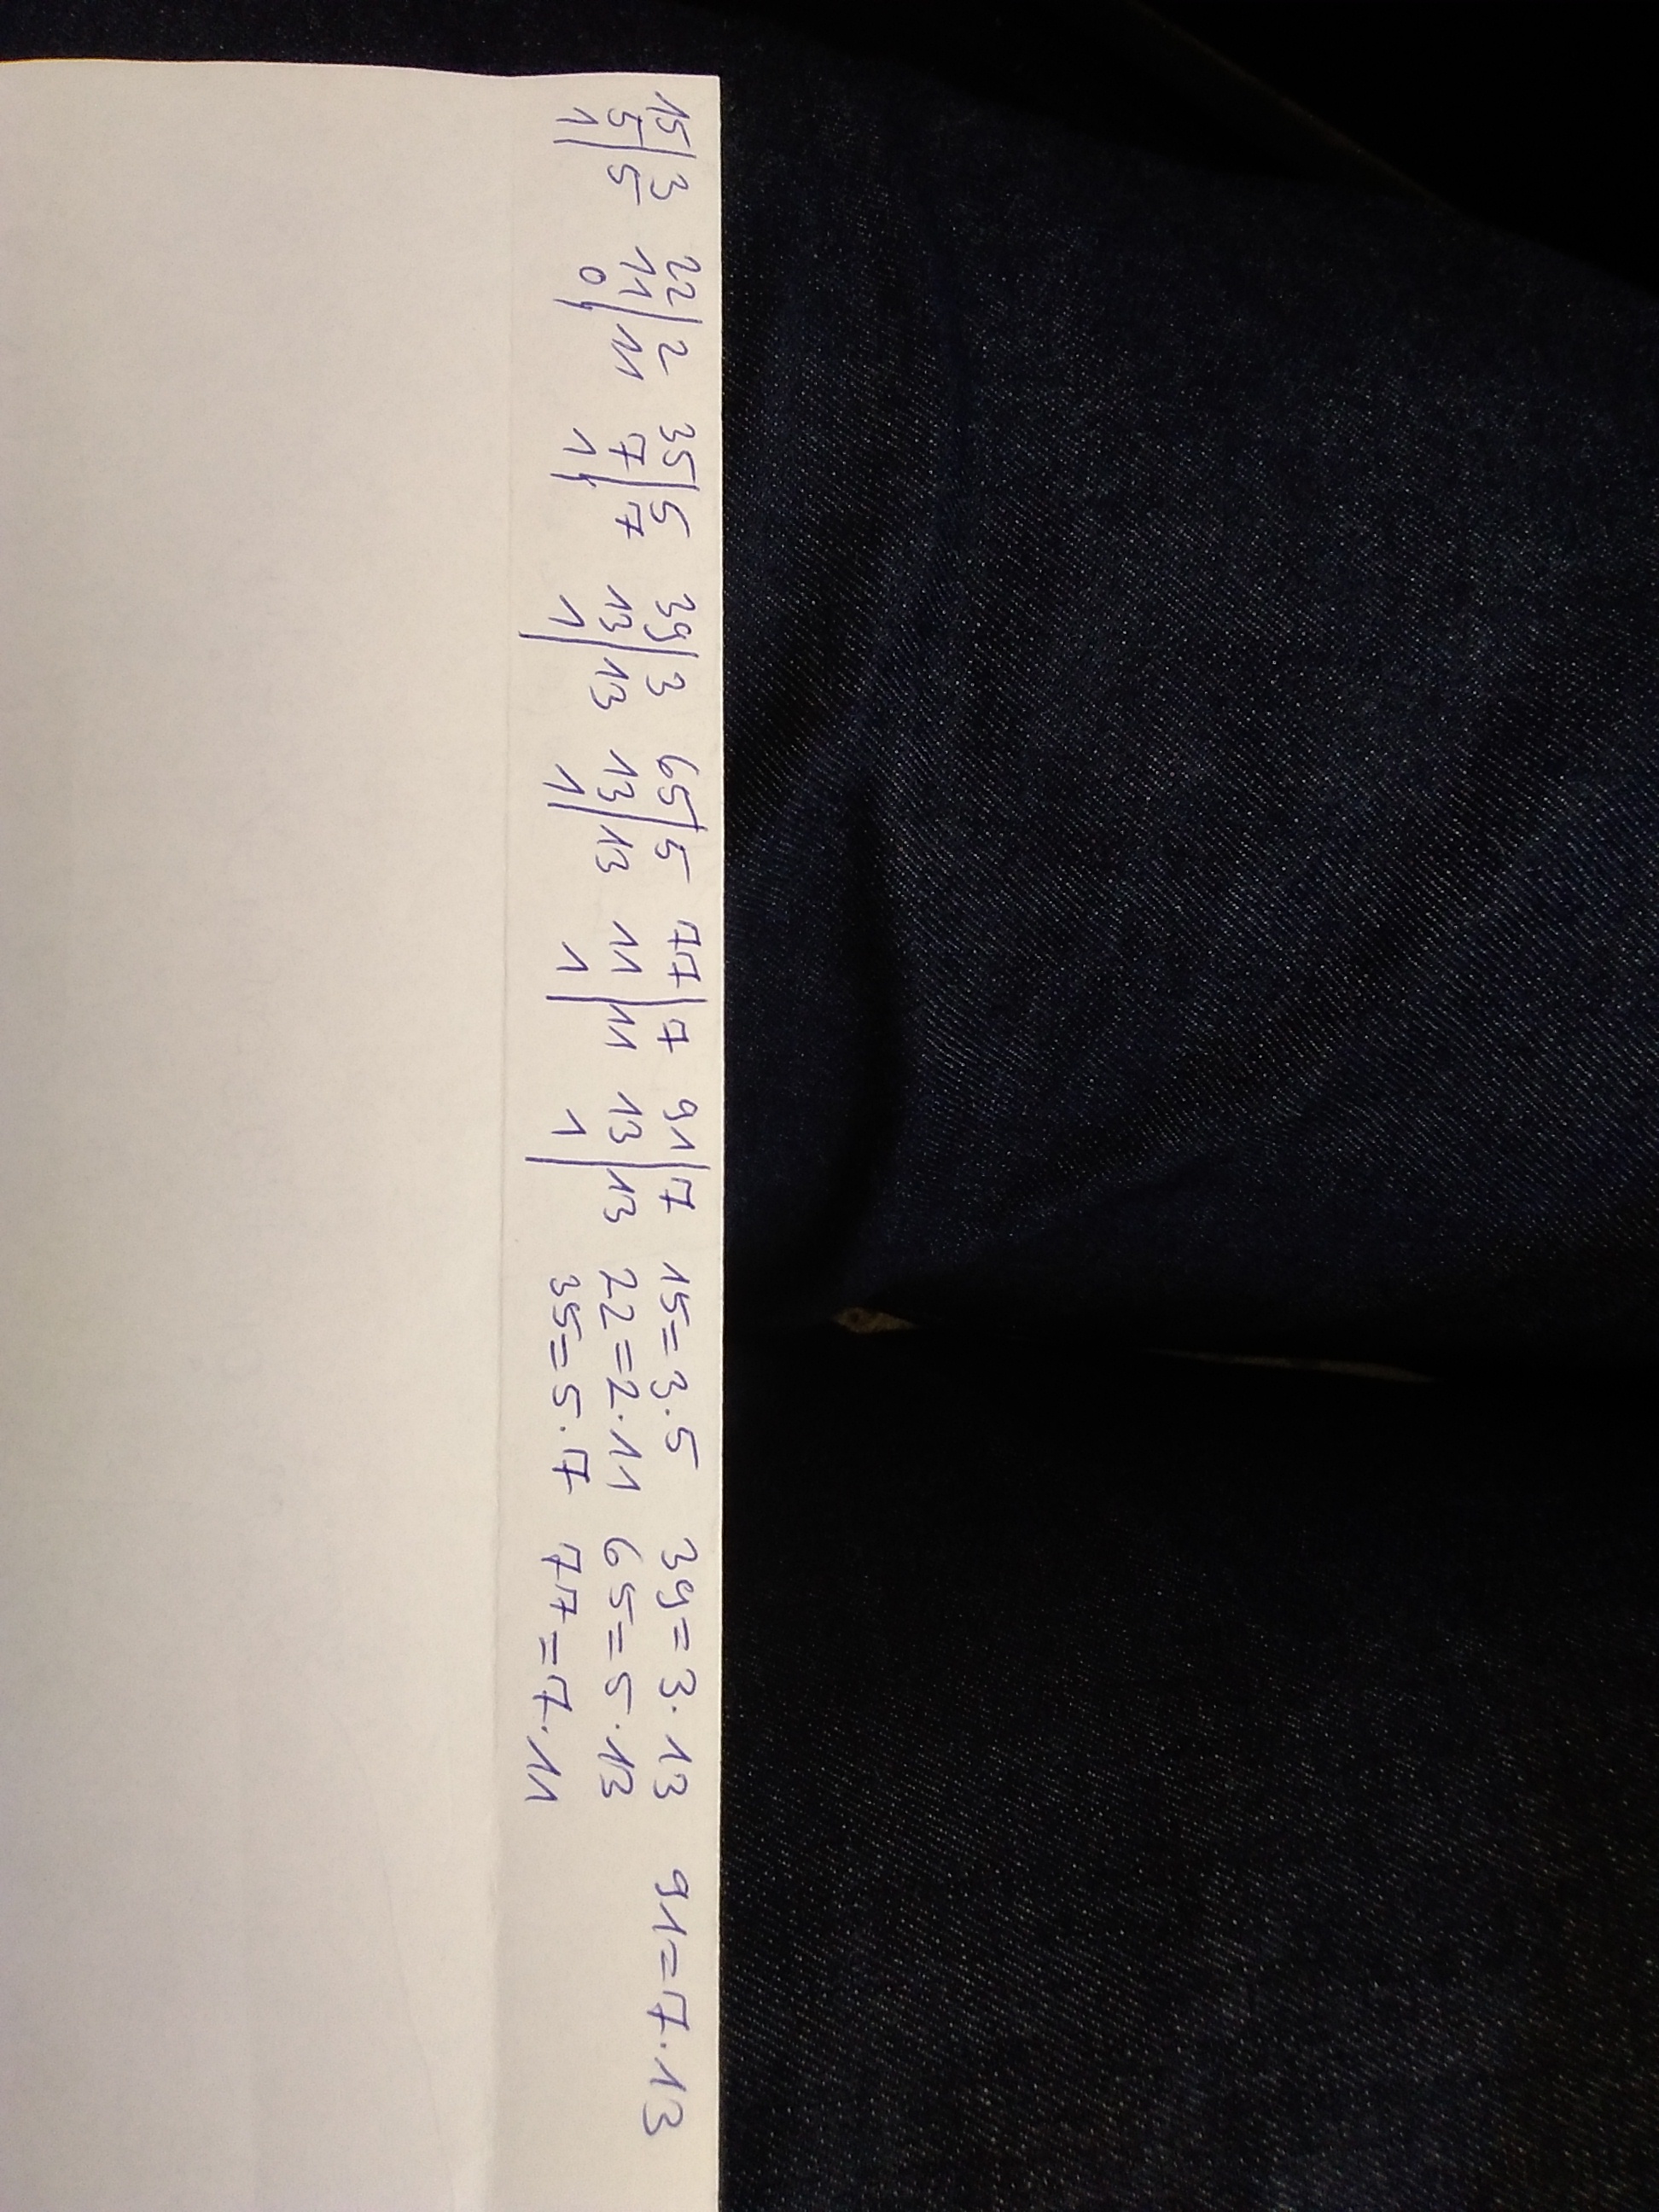 15|3 22|2 35|5 39|3 65|5 77|7 91|7 15=3·5 39=3·13 91=7·13
5|5 11|11 7|7 13|13 13|13 11|11 13|13 22=2·11 65=5·13
1| 0| 1| 1| 1| 1| 1| 35=5·7 77=7·11